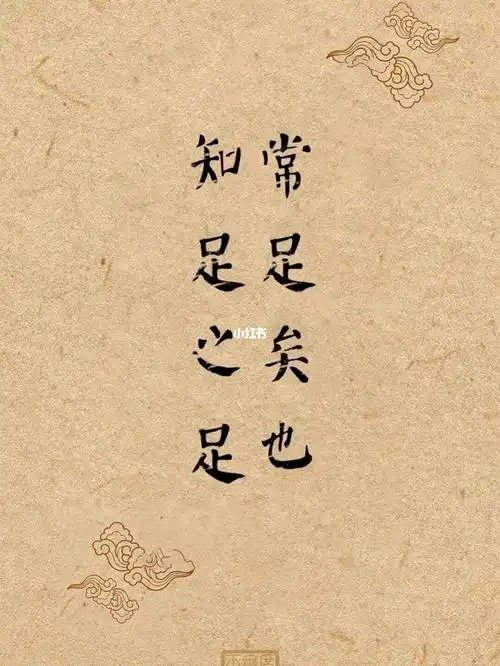 知足之足
常足矣也
小红书